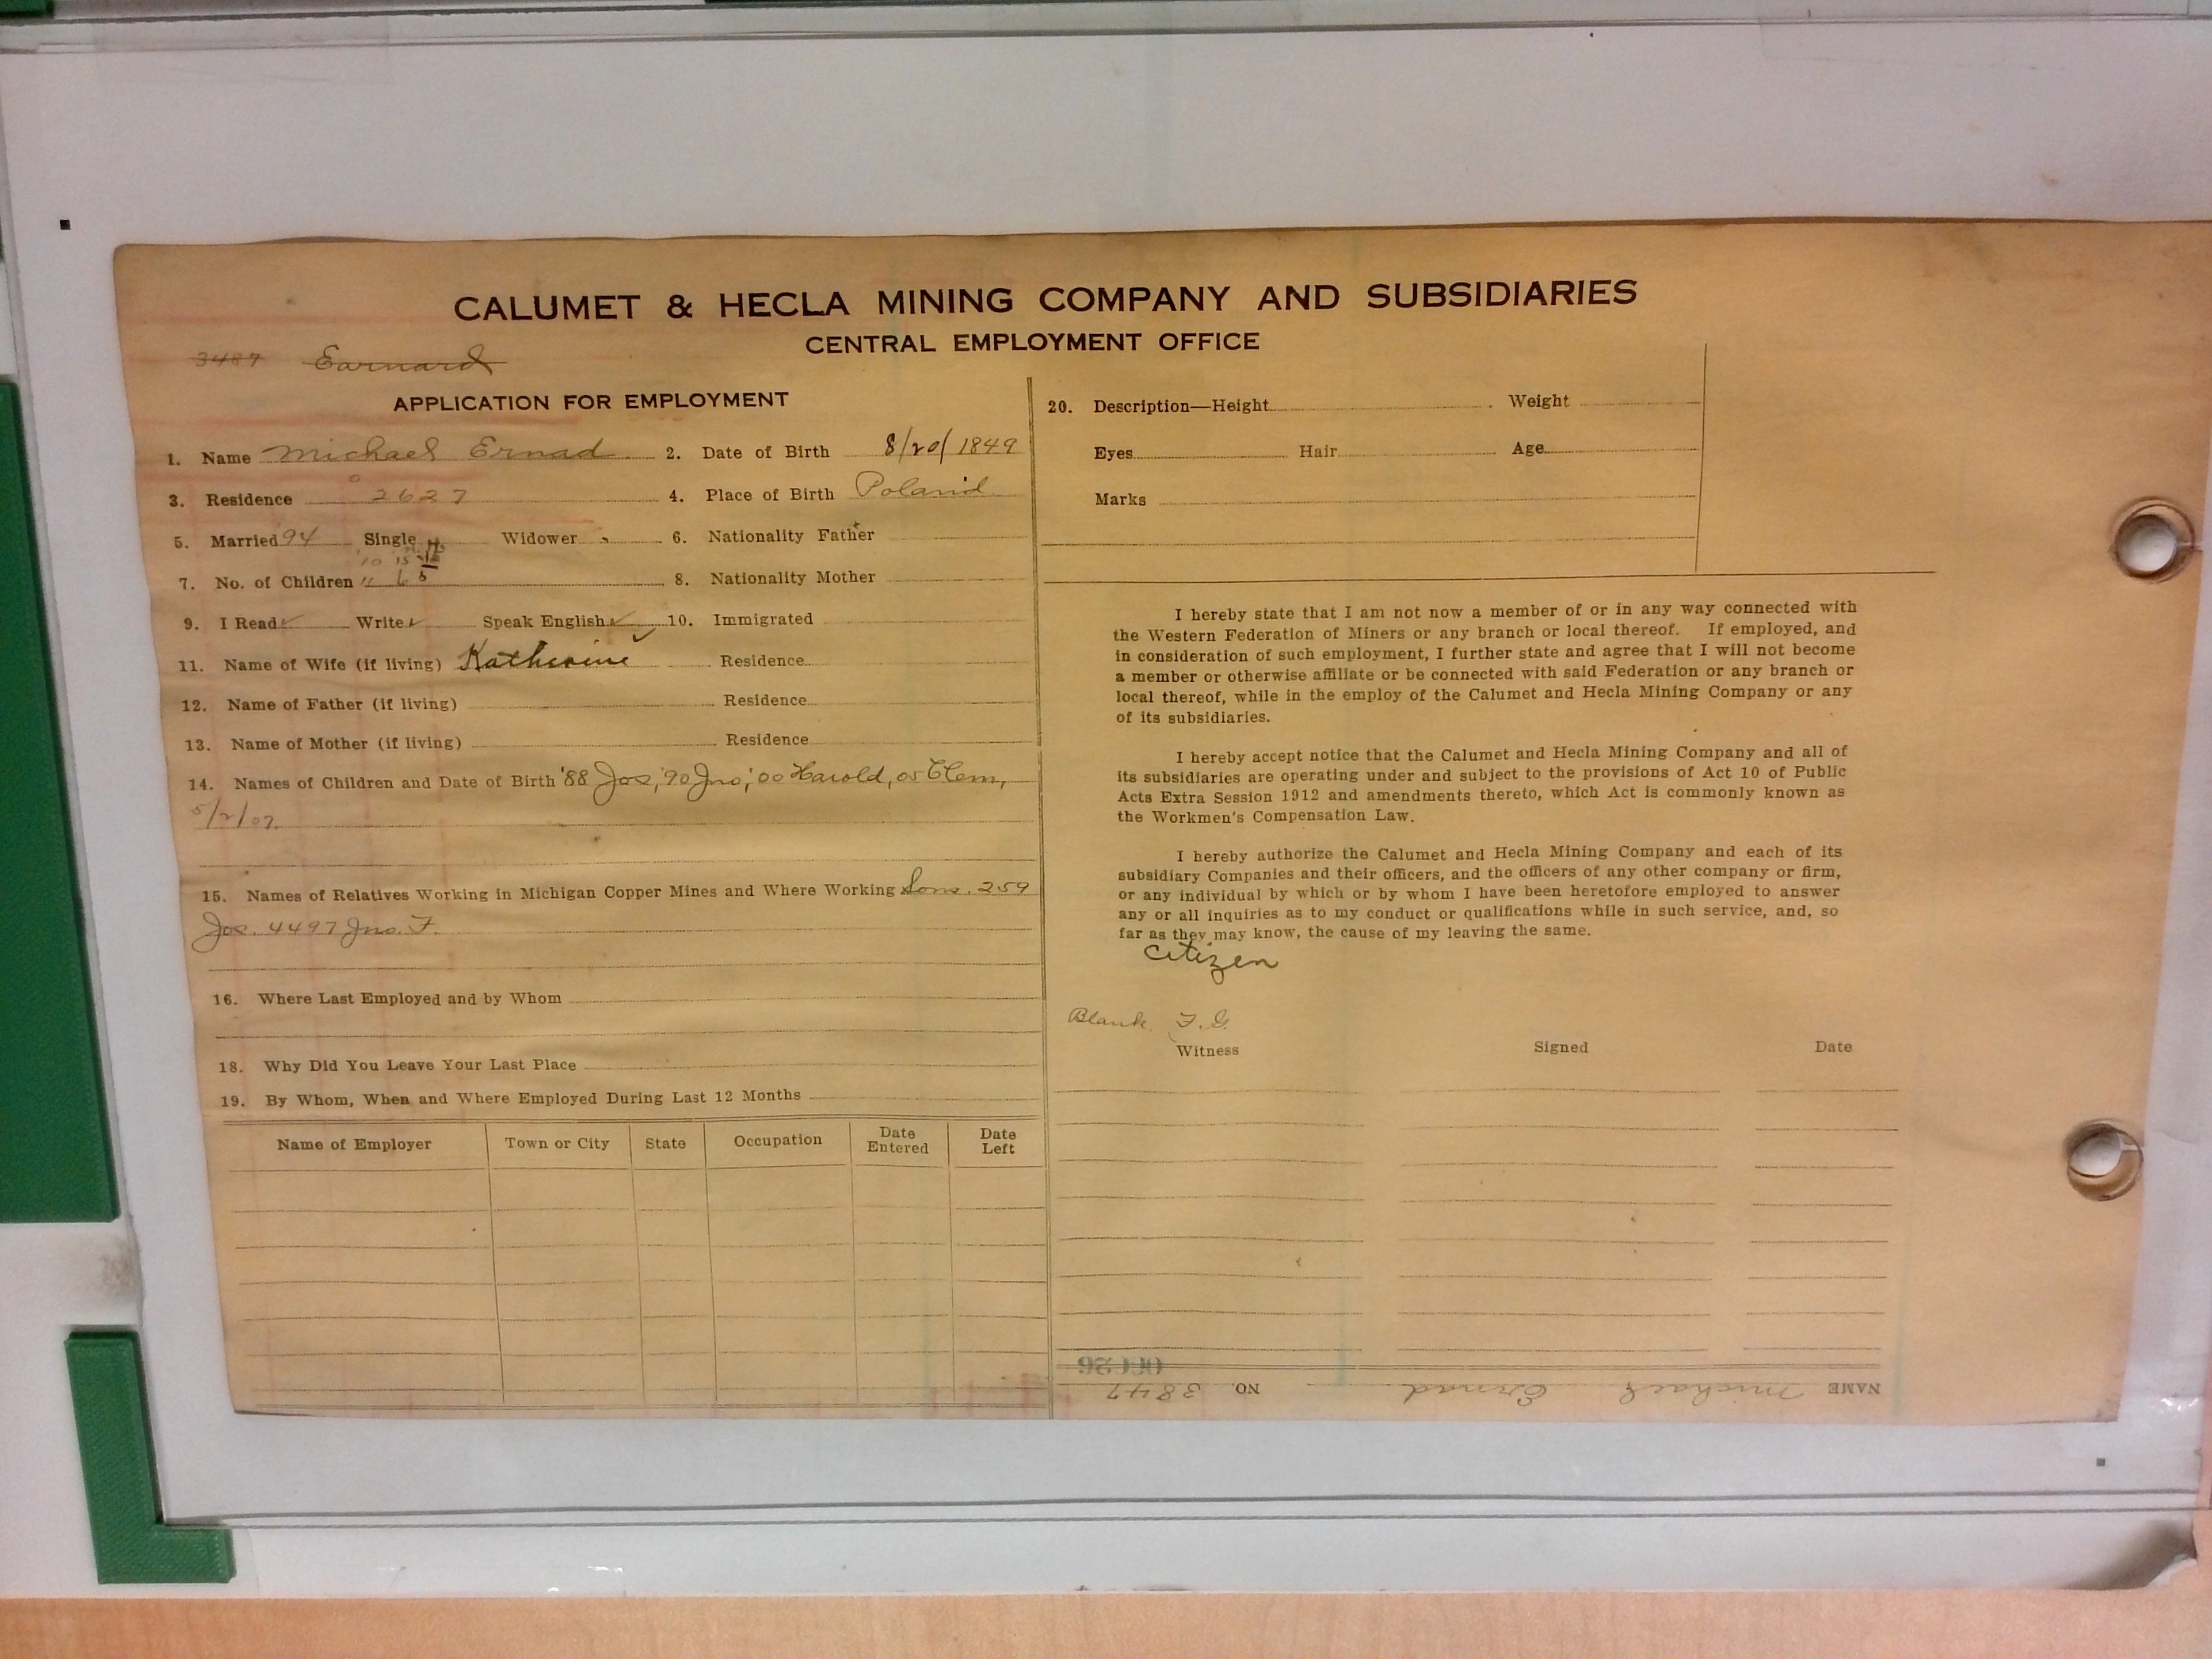 CALUMET & HECLA MINING COMPANY AND SUBSIDIARIES
CENTRAL EMPLOYMENT OFFICE
3487 Earnard
APPLICATION FOR EMPLOYMENT
1. Name Michael Ernad 2. Date of Birth 8/20/1849
3. Residence 2627 4. Place of Birth Poland
5. Married 94 Single Widower 6. Nationality Father
'10 '15
7. No. of Children 11 6 5 8. Nationality Mother
9. I Read ✓ Write ✓ Speak English ✓ 10. Immigrated
11. Name of Wife (if living) Katherine ✓ Residence
12. Name of Father (if living) Residence
13. Name of Mother (if living) Residence
14. Names of Children and Date of Birth '88 Jos, '90 Jno; 00 Harold, 05 Clem,
5/2/07.
15. Names of Relatives Working in Michigan Copper Mines and Where Working Sons. 259
Jos. 4497 Jno. F.
16. Where Last Employed and by Whom
18. Why Did You Leave Your Last Place
19. By Whom, When and Where Employed During Last 12 Months
Name of Employer Town or City State Occupation Date Entered Date Left
20. Description—Height Weight
Eyes Hair Age
Marks
I hereby state that I am not now a member of or in any way connected with
the Western Federation of Miners or any branch or local thereof. If employed, and
in consideration of such employment, I further state and agree that I will not become
a member or otherwise affiliate or be connected with said Federation or any branch or
local thereof, while in the employ of the Calumet and Hecla Mining Company or any
of its subsidiaries.
I hereby accept notice that the Calumet and Hecla Mining Company and all of
its subsidiaries are operating under and subject to the provisions of Act 10 of Public
Acts Extra Session 1912 and amendments thereto, which Act is commonly known as
the Workmen's Compensation Law.
I hereby authorize the Calumet and Hecla Mining Company and each of its
subsidiary Companies and their officers, and the officers of any other company or firm,
or any individual by which or by whom I have been heretofore employed to answer
any or all inquiries as to my conduct or qualifications while in such service, and, so
far as they may know, the cause of my leaving the same.
Citizen
Blank F. G.
Witness Signed Date
NAME Michael Ernad NO. 3847